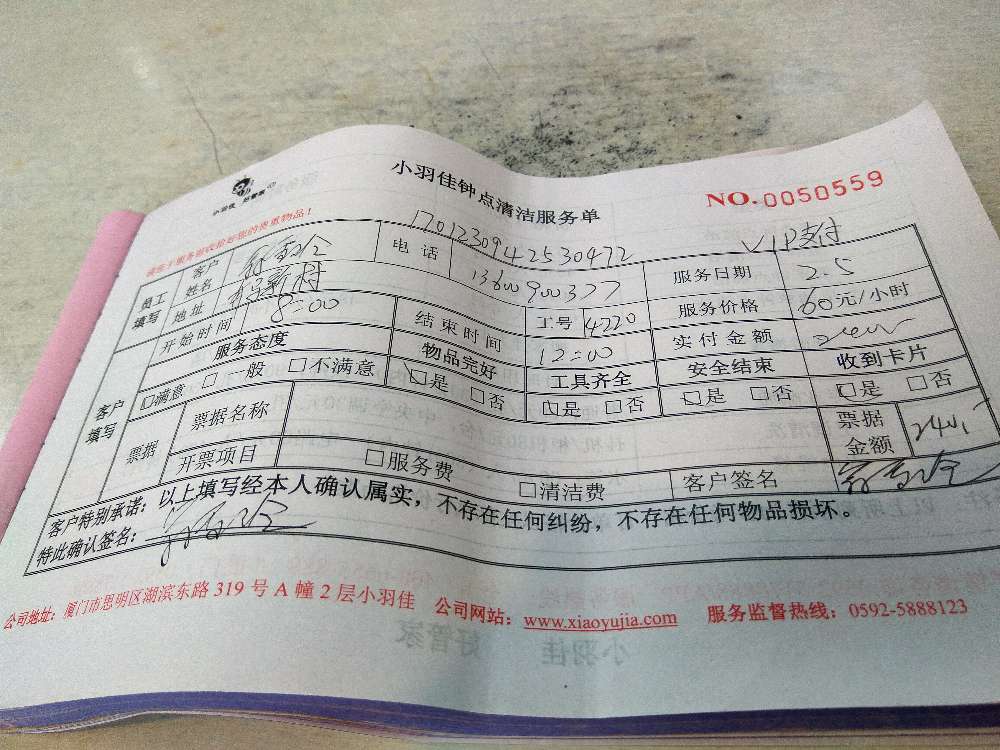 小羽佳 好管家
小羽佳钟点清洁服务单
NO.0050559
请在下服务前收拾好您的贵重物品！
1701230942530472
VIP支付
员工填写
客户姓名
电话
13600900377
服务日期
2.5
地址
新村
工号
4220
服务价格
60元/小时
开始时间
8:00
结束时间
12:00
实付金额
客户填写
服务态度
物品完好
工具齐全
安全结束
收到卡片
□满意 □一般 □不满意
□是 □否
□是 □否
□是 □否
□是 □否
票据
票据名称
票据金额
开票项目
□服务费
□清洁费
客户签名
客户特别承诺：以上填写经本人确认属实，不存在任何纠纷，不存在任何物品损坏。
特此确认签名：
公司地址：厦门市思明区湖滨东路 319 号 A 幢 2 层小羽佳 公司网站：www.xiaoyujia.com 服务监督热线：0592-5888123